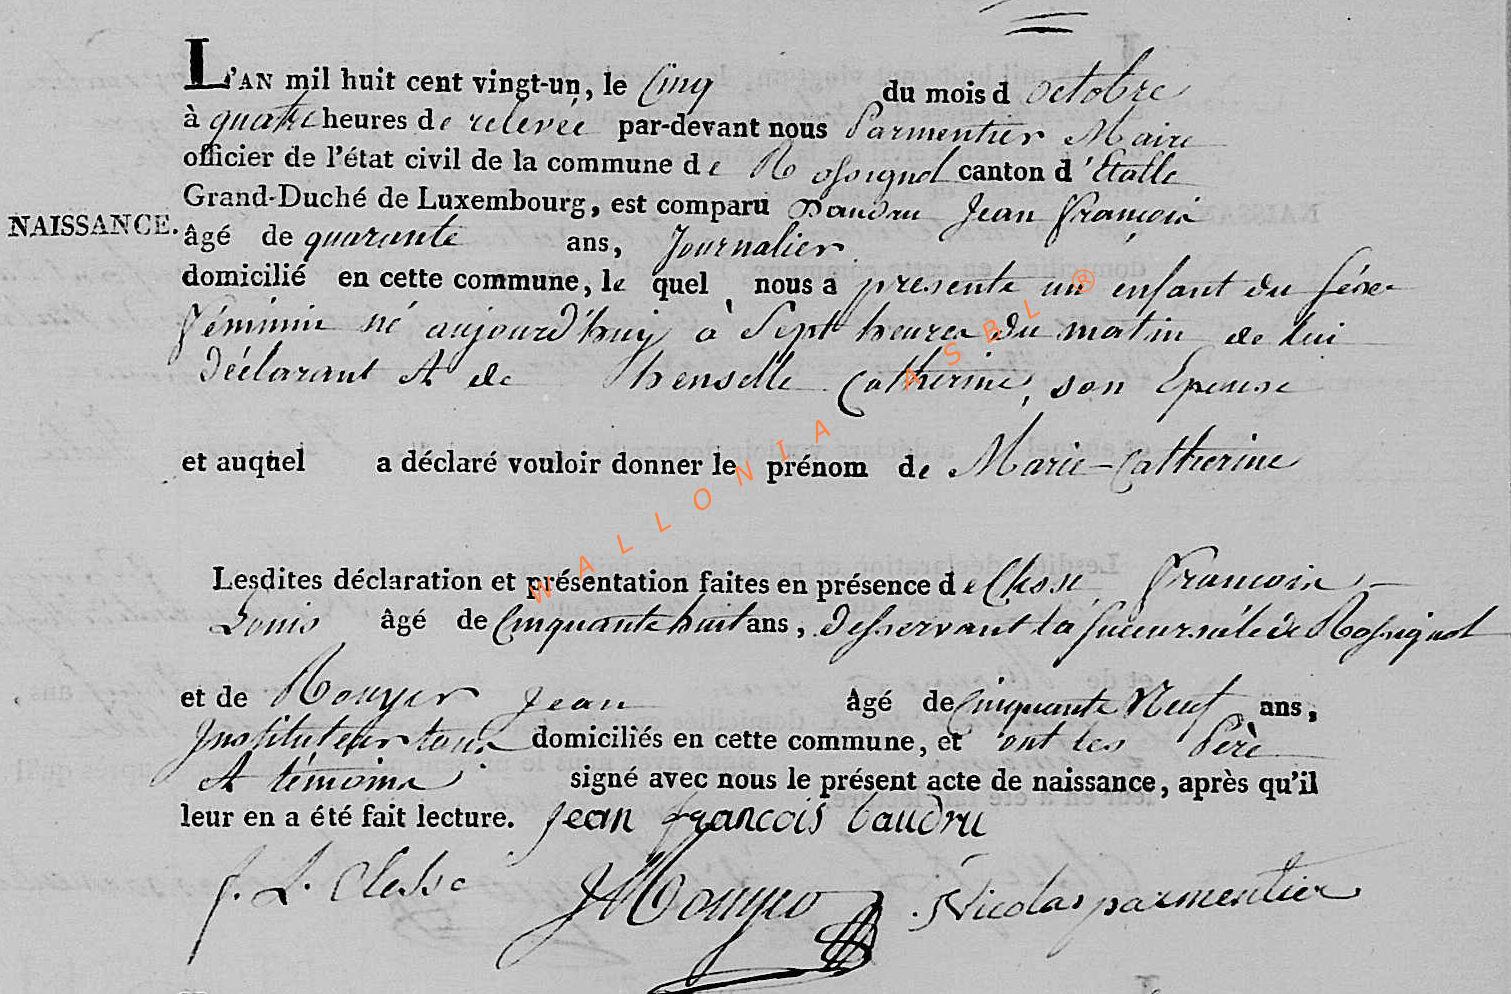 L'AN mil huit cent vingt-un, le Cinq du mois d octobre
à quatre heures de relevée par-devant nous Parmentier Maire
officier de l'état civil de la commune de Rossignol canton d'Etalle
Grand-Duché de Luxembourg, est comparu Baudru Jean François
NAISSANCE. âgé de quarante ans, Journalier
domicilié en cette commune, le quel nous a presenté un enfant du séxe
féminin né aujourd'huy à Sept heures du matin de lui
déclarant et de henselle Catherine, son Epouse
et auquel a déclaré vouloir donner le prénom de Marie-Catherine
Lesdites déclaration et présentation faites en présence de François
Louis âgé de Cinquante huit ans, desservant la succursale de Rossignol
et de Rouyer Jean âgé de Cinquante Neuf ans,
Instituteur tous domiciliés en cette commune, et ont les Père
et témoins signé avec nous le présent acte de naissance, après qu'il
leur en a été fait lecture. Jean françois baudru
f. L. Clesse J Rouyer Nicolas parmentier
WALLONIA ASBL ®